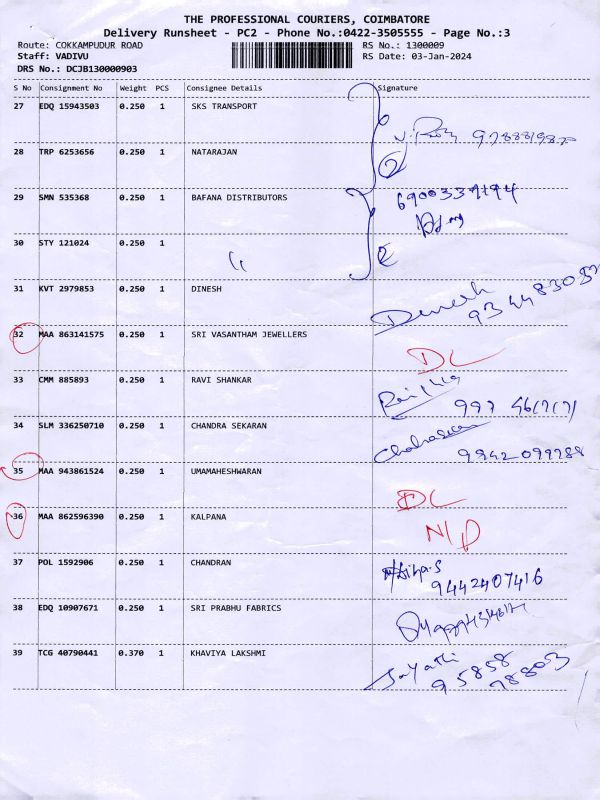 THE PROFESSIONAL COURIERS, COIMBATORE
Delivery Runsheet - PC2 - Phone No.:0422-3505555 - Page No.:3
Route: COKKAMPUDUR ROAD RS No.: 1300009
Staff: VADIVU RS Date: 03-Jan-2024
DRS No.: DCJB130000903
S No Consignment No Weight PCS Consignee Details Signature
27 EDQ 15943503 0.250 1 SKS TRANSPORT
28 TRP 6253656 0.250 1 NATARAJAN
29 SMN 535368 0.250 1 BAFANA DISTRIBUTORS
30 STY 121024 0.250 1
31 KVT 2979853 0.250 1 DINESH Dinesh
32 MAA 863141575 0.250 1 SRI VASANTHAM JEWELLERS DC
33 CMM 885893 0.250 1 RAVI SHANKAR
34 SLM 336250710 0.250 1 CHANDRA SEKARAN
9942099788
35 MAA 943861524 0.250 1 UMAMAHESHWARAN DC
36 MAA 862596390 0.250 1 KALPANA N/D
37 POL 1592906 0.250 1 CHANDRAN
9442407416
38 EDQ 10907671 0.250 1 SRI PRABHU FABRICS
39 TCG 40790441 0.370 1 KHAVIYA LAKSHMI
95858
78803